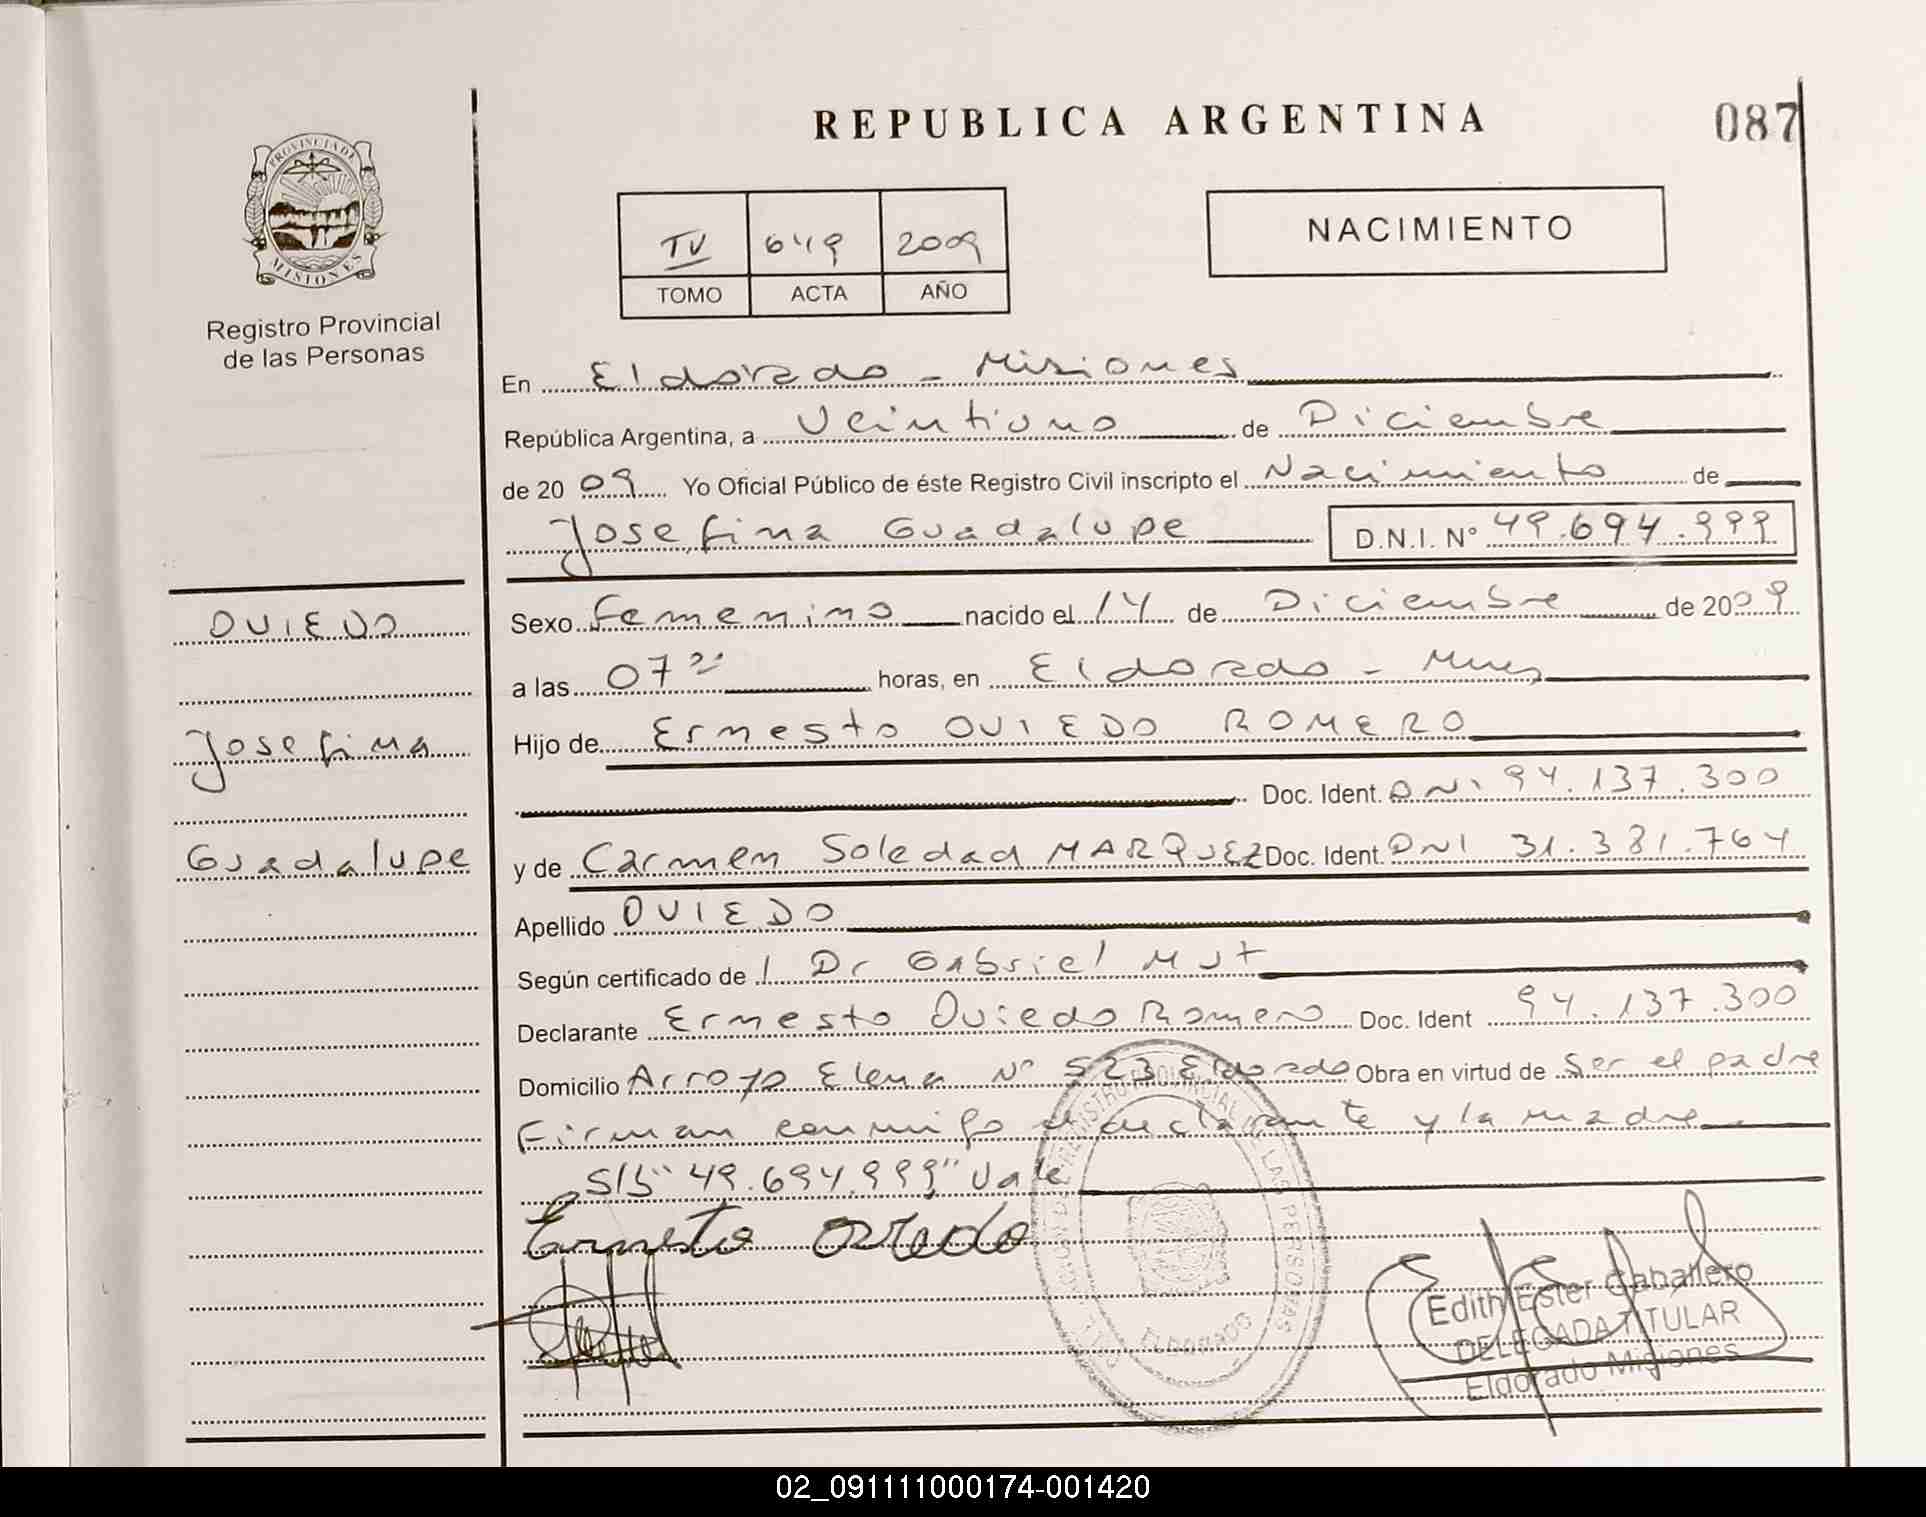 REPUBLICA ARGENTINA
087
PROVINCIA DE
MISIONES
Registro Provincial
de las Personas
TV 649 2009
TOMO ACTA AÑO
NACIMIENTO
En Eldorado - Misiones
República Argentina, a Veintiuno de Diciembre
de 2009 Yo Oficial Público de éste Registro Civil inscripto el Nacimiento de
Josefina Guadalupe D.N.I. N° 49.694.999
OVIEDO
Josefina
Guadalupe
Sexo Femenino nacido el 14 de Diciembre de 2009
a las 07 horas, en Eldorado - Mnes
Hijo de Ernesto OVIEDO ROMERO
Doc. Ident. DNI 94.137.300
y de Carmen Soledad MARQUEZ Doc. Ident. DNI 31.381.764
Apellido OVIEDO
Según certificado de / Dr Gabriel Mut
Declarante Ernesto Oviedo Romero Doc. Ident 94.137.300
Domicilio Arroyo Elena N° 523 Eldorado Obra en virtud de ser el padre
Firman conmigo el declarante y la madre
S/b "49.694.999" Vale
Ernesto Oviedo
REGISTRO PROVINCIAL DE LAS PERSONAS
ELDORADO
Edith Ester Caballero
DELEGADA TITULAR
Eldorado Misiones
02_091111000174-001420